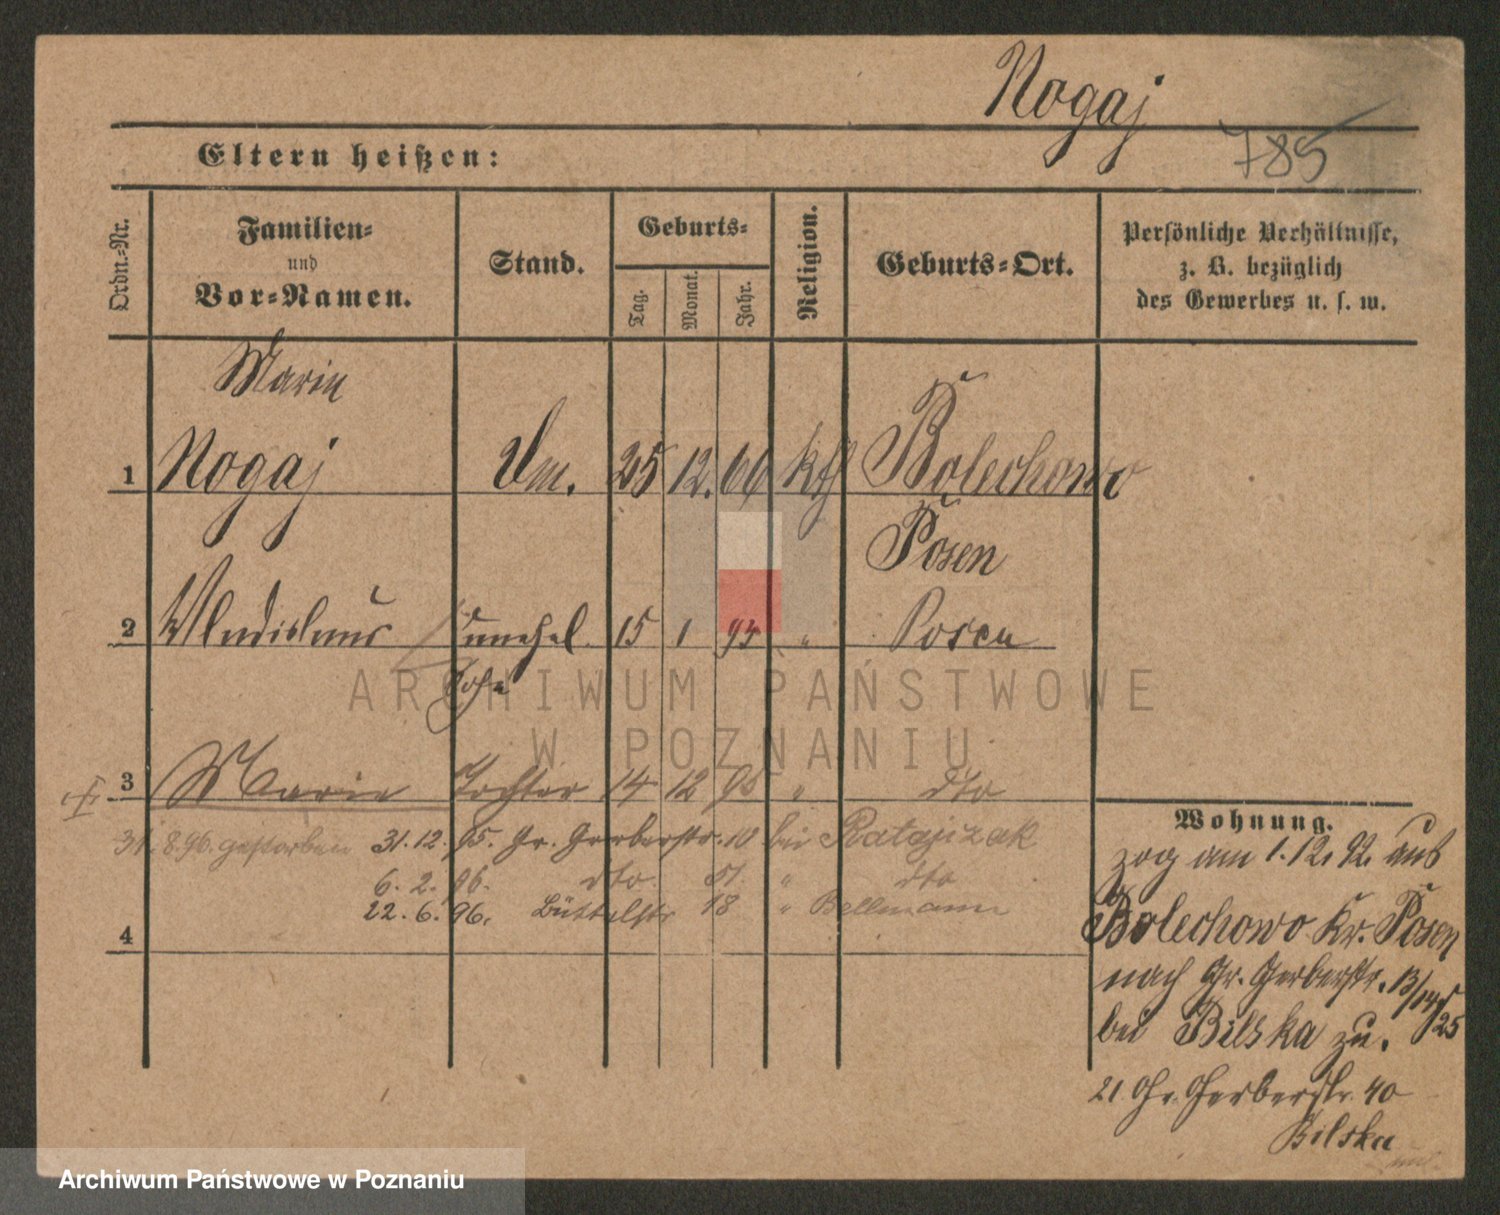 Nogaj
785
Eltern heißen:
Ordn.-Nr.
Familien-
und
Vor-Namen.
Stand.
Geburts-
Tag.
Monat.
Jahr.
Religion.
Geburts-Ort.
Persönliche Verhältnisse,
z. B. bezüglich
des Gewerbes u. s. w.
Marie
1 Nogaj Um. 25 12. 66 kth Bolechowo
Posen
2 Vladislaus unehel. 15 1 94 " Posen
Sohn
ARCHIWUM PAŃSTWOWE
W POZNANIU
3 Marie Tochter 14 12 95 " dto
31.8.96. gestorben 31.12.95. Gr. Gerberstr. 10 bei Ratajczak
6. 2. 96. dto. " dto
22. 6. 96. Büttelstr 18 " Bellmann
4
Wohnung.
zog am 1.12.92. aus
Bolechowo Kr. Posen
nach Gr. Gerberstr. 13/14
bei Bilska zu.
21 Gr. Gerberstr. 40
Bilska
Archiwum Państwowe w Poznaniu